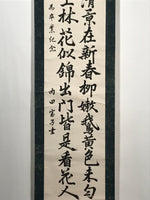 清景在新春柳嫩鵞黄色未匀
上林花似錦出門皆是看花人
為卒業紀念
内田富子書